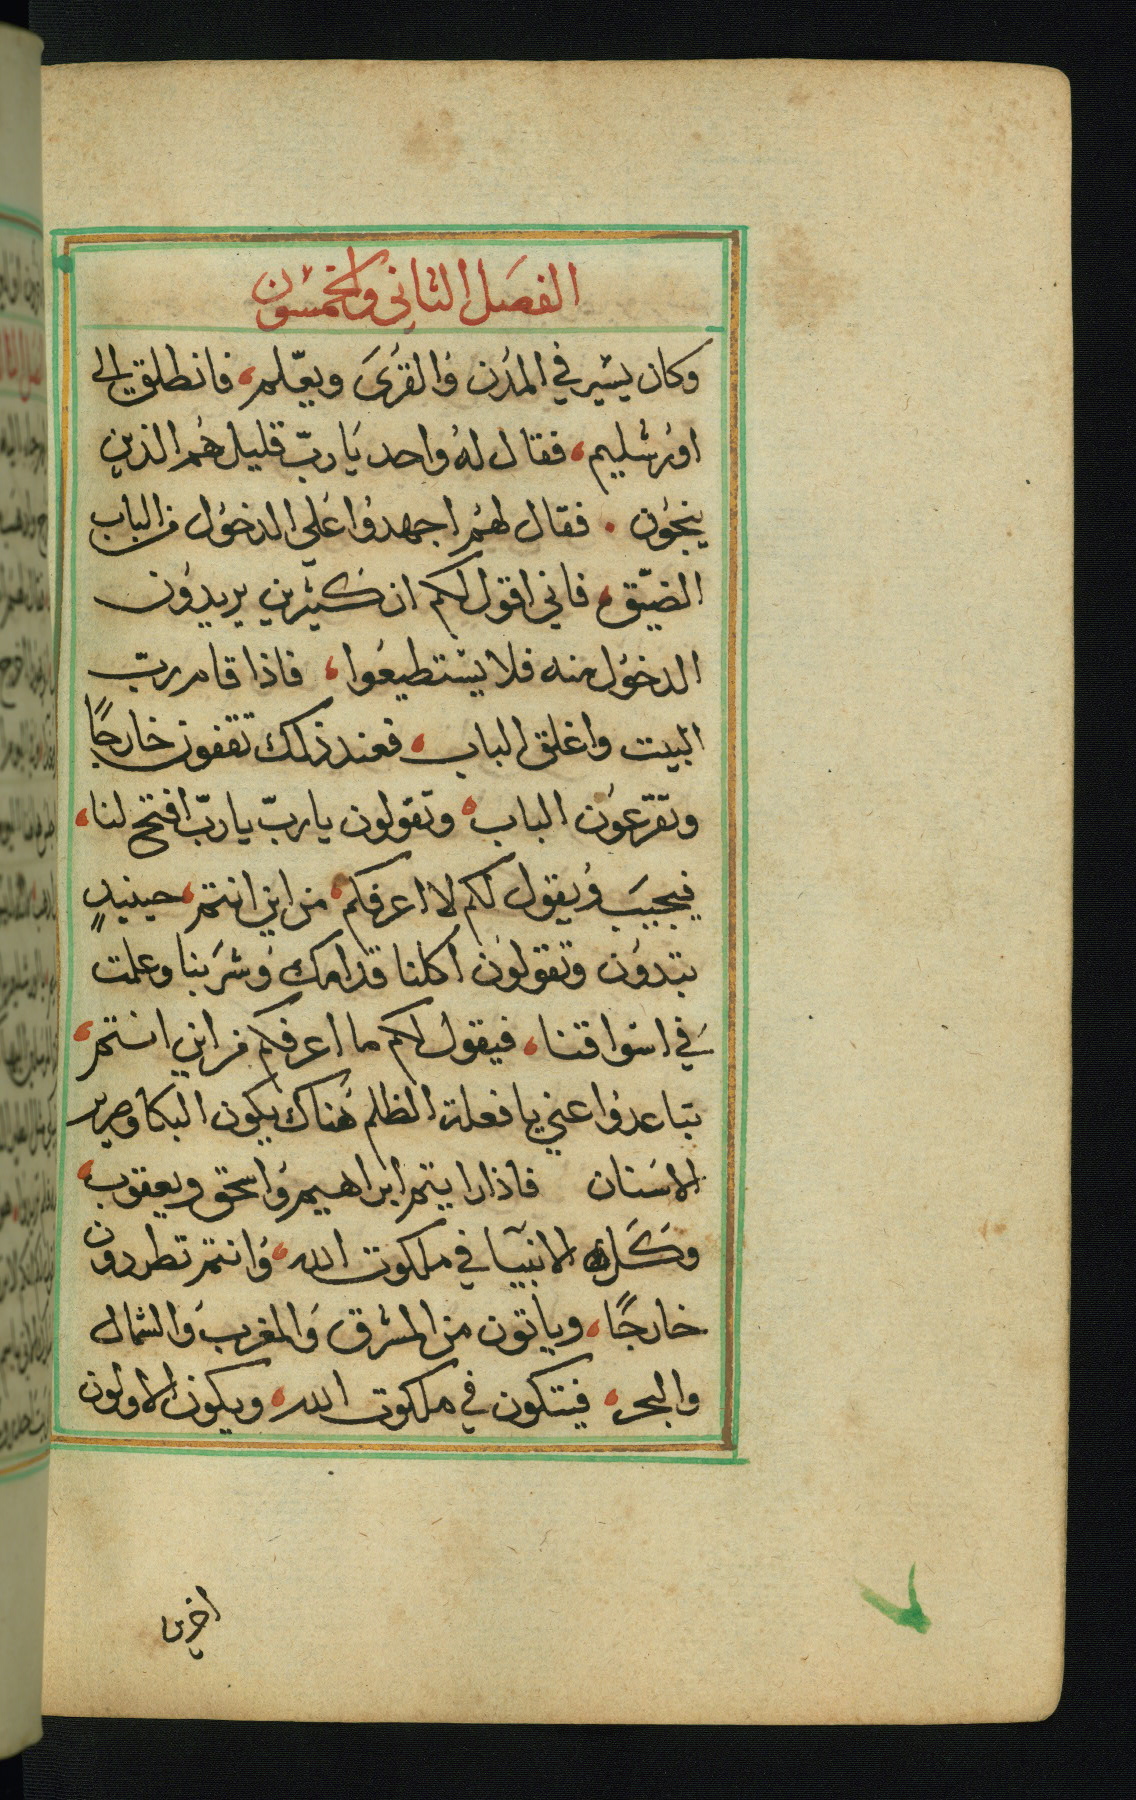 الفصل الثاني والخمسون
وكان يسير في المدن والقرى ويعلم، فانطلق الى
اورشليم، فقال له واحد يا رب قليل هم الذين
ينجون . فقال لهم اجهدوا علي الدخول من الباب
الضيق، فاني اقول لكم ان كثيرين يريدون
الدخول منه فلا يستطيعوا، فاذا قام رب
البيت واغلق الباب، فعند ذلك تقفون خارجًا
وتقرعون الباب، وتقولون يا رب يا رب افتح لنا،
فيجيب ويقول لكم لا اعرفكم، من اين انتم، حينيدٍ
تبتدون وتقولون اكلنا قدامك وشربنا وعلمت
في اسواقنا، فيقول لكم ما اعرفكم من اين انتم،
تباعدوا عني يا فعلة الظلم هناك يكون البكا وصرير
الاسنان فاذا رايتم ابراهيم واسحق ويعقوب،
وكل الانبيآ في ملكوت الله، وانتم تطردون
خارجًا، وياتون من المشرق والمغرب والشمال
والبحر، فيتكون في ملكوت الله، ويكون الاولون
اخرين